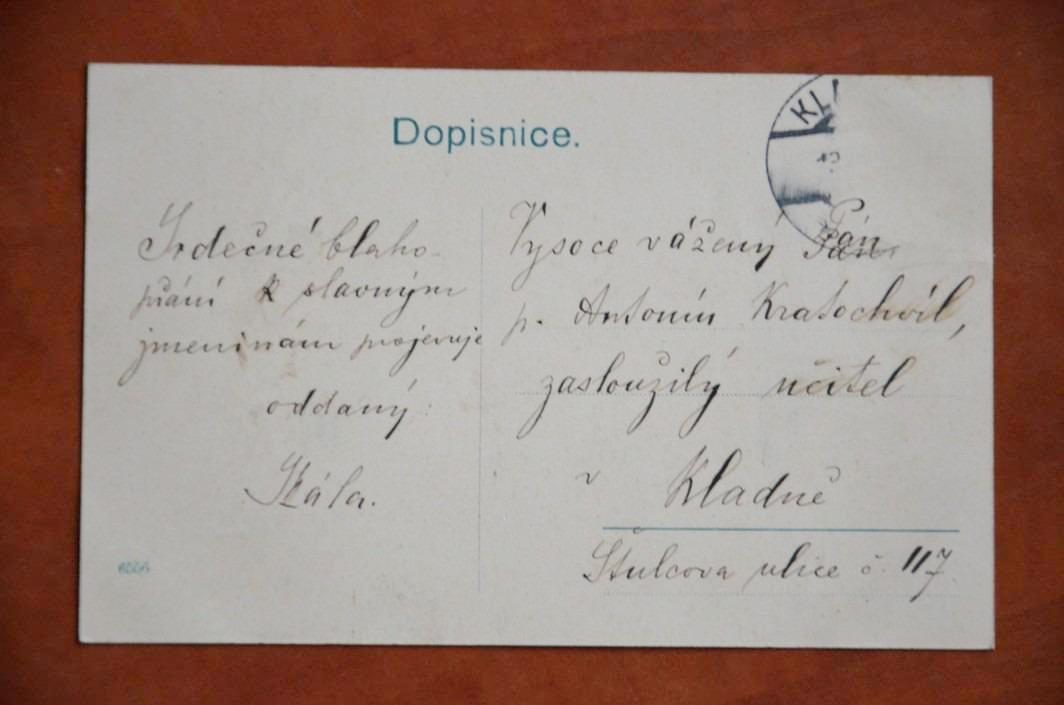 Dopisnice.
KL
Srdečné blaho-
přání k slavným
jmeninám projevuje
oddaný
Skála.
Vysoce vážený Pán
p. Antonín Kratochvíl,
zasloužilý učitel
v Kladně
Štulcova ulice č. 117